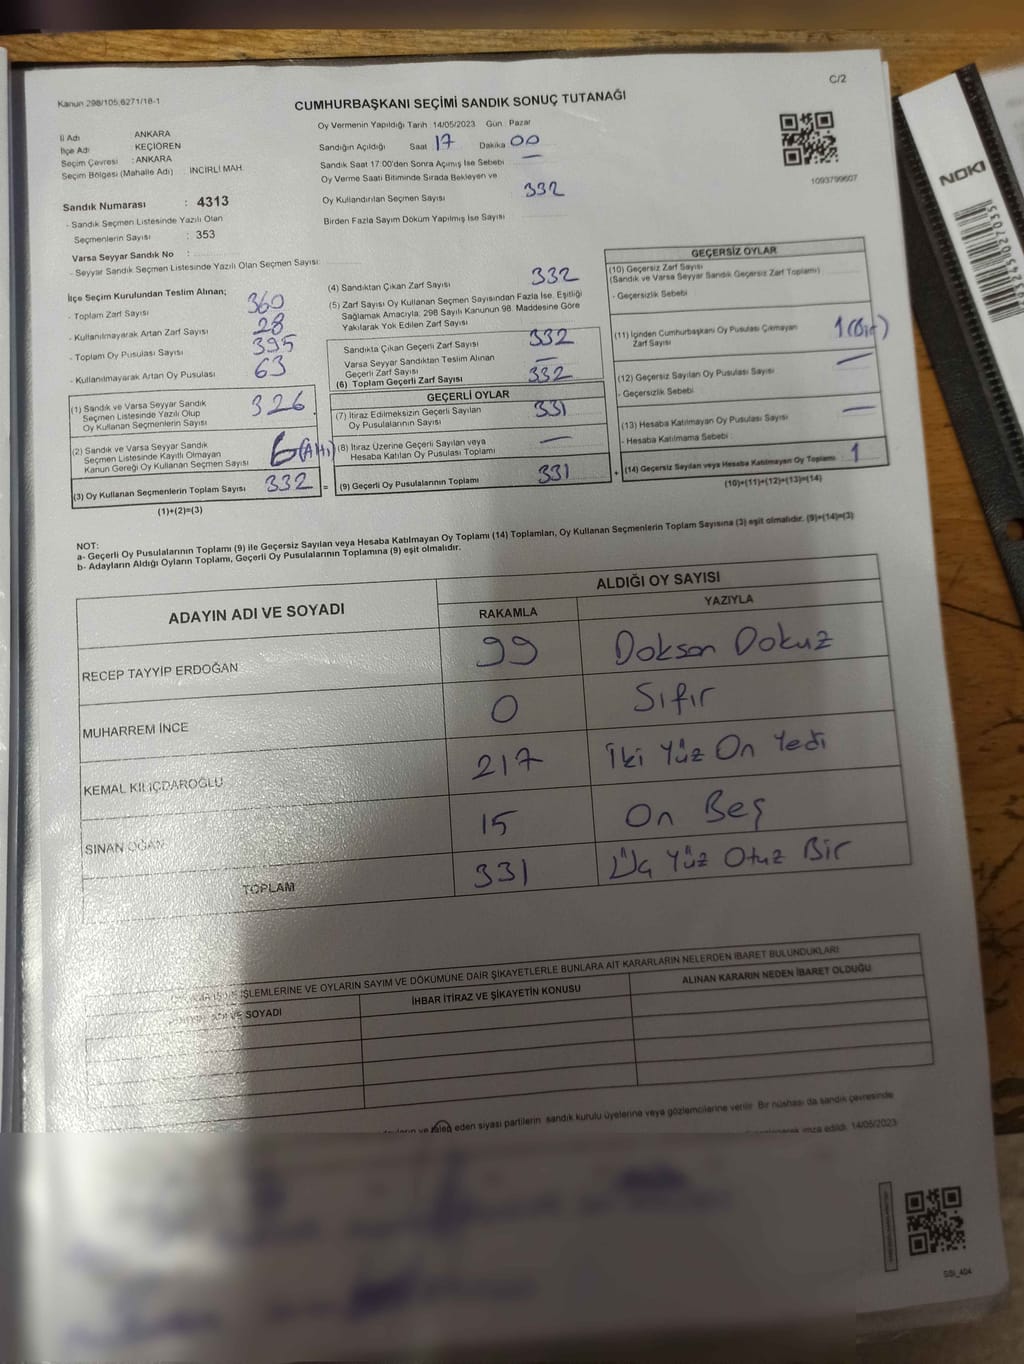 C/2
Kanun 298/105,6271/18-1
CUMHURBAŞKANI SEÇİMİ SANDIK SONUÇ TUTANAĞI
İl Adı ANKARA
İlçe Adı : KEÇİÖREN
Seçim Çevresi : ANKARA
Seçim Bölgesi (Mahalle Adı) : İNCİRLİ MAH.
Oy Vermenin Yapıldığı Tarih 14/05/2023 Gün Pazar
Sandığın Açıldığı Saat 17 Dakika 00
Sandık Saat 17:00'den Sonra Açımış İse Sebebi —
Oy Verme Saati Bitiminde Sırada Bekleyen ve
Oy Kullandırılan Seçmen Sayısı 332
Birden Fazla Sayım Döküm Yapılmış İse Sayısı
1093799607
NOKI
Sandık Numarası : 4313
- Sandık Seçmen Listesinde Yazılı Olan
Seçmenlerin Sayısı : 353
Varsa Seyyar Sandık No :
- Seyyar Sandık Seçmen Listesinde Yazılı Olan Seçmen Sayısı:
İlçe Seçim Kurulundan Teslim Alınan;
- Toplam Zarf Sayısı 360
- Kullanılmayarak Artan Zarf Sayısı 28
- Toplam Oy Pusulası Sayısı 395
- Kullanılmayarak Artan Oy Pusulası 63
(1) Sandık ve Varsa Seyyar Sandık
Seçmen Listesinde Yazılı Olup
Oy Kullanan Seçmenlerin Sayısı 326
(2) Sandık ve Varsa Seyyar Sandık
Seçmen Listesinde Kayıtlı Olmayan
Kanun Gereği Oy Kullanan Seçmen Sayısı 6 (Altı)
(3) Oy Kullanan Seçmenlerin Toplam Sayısı 332 =
(1)+(2)=(3)
(4) Sandıktan Çıkan Zarf Sayısı 332
(5) Zarf Sayısı Oy Kullanan Seçmen Sayısından Fazla İse, Eşitliği
Sağlamak Amacıyla, 298 Sayılı Kanunun 98. Maddesine Göre
Yakılarak Yok Edilen Zarf Sayısı
Sandıkta Çıkan Geçerli Zarf Sayısı 332
Varsa Seyyar Sandıktan Teslim Alınan
Geçerli Zarf Sayısı —
(6) Toplam Geçerli Zarf Sayısı 332
GEÇERLİ OYLAR
(7) İtiraz Edilmeksizin Geçerli Sayılan
Oy Pusulasının Sayısı 331
(8) İtiraz Üzerine Geçerli Sayılan veya
Hesaba Katılan Oy Pusulası Toplamı —
(9) Geçerli Oy Pusulalarının Toplamı 331 +
GEÇERSİZ OYLAR
(10) Geçersiz Zarf Sayısı
(Sandık ve Varsa Seyyar Sandık Geçersiz Zarf Toplamı)
- Geçersizlik Sebebi
(11) İçinden Cumhurbaşkanı Oy Pusulası Çıkmayan
Zarf Sayısı 1 (Bir)
(12) Geçersiz Sayılan Oy Pusulası Sayısı —
- Geçersizlik Sebebi
(13) Hesaba Katılmayan Oy Pusulası Sayısı —
- Hesaba Katılmama Sebebi
(14) Geçersiz Sayılan veya Hesaba Katılmayan Oy Toplamı 1
(10)+(11)+(12)+(13)=(14)
NOT:
a- Geçerli Oy Pusulalarının Toplamı (9) ile Geçersiz Sayılan veya Hesaba Katılmayan Oy Toplamı (14) Toplamları, Oy Kullanan Seçmenlerin Toplam Sayısına (3) eşit olmalıdır. (9)+(14)=(3)
b- Adayların Aldığı Oyların Toplamı, Geçerli Oy Pusulalarının Toplamına (9) eşit olmalıdır.
ADAYIN ADI VE SOYADI
ALDIĞI OY SAYISI
RAKAMLA YAZIYLA
RECEP TAYYİP ERDOĞAN 99 Doksan Dokuz
MUHARREM İNCE 0 Sıfır
KEMAL KILIÇDAROĞLU 217 İki Yüz On Yedi
SİNAN OĞAN 15 On Beş
TOPLAM 331 Üç Yüz Otuz Bir
İŞLEMLERİNE VE OYLARIN SAYIM VE DÖKÜMÜNE DAİR ŞİKAYETLERLE BUNLARA AİT KARARLARIN NELERDEN İBARET BULUNDUKLARI
ADI VE SOYADI
İHBAR İTİRAZ VE ŞİKAYETİN KONUSU
ALINAN KARARIN NEDEN İBARET OLDUĞU
ve talep eden siyasi partilerin sandık kurulu üyelerine veya gözlemcilerine verilir. Bir nüshası da sandık çevresinde
imza edildi. 14/05/2023